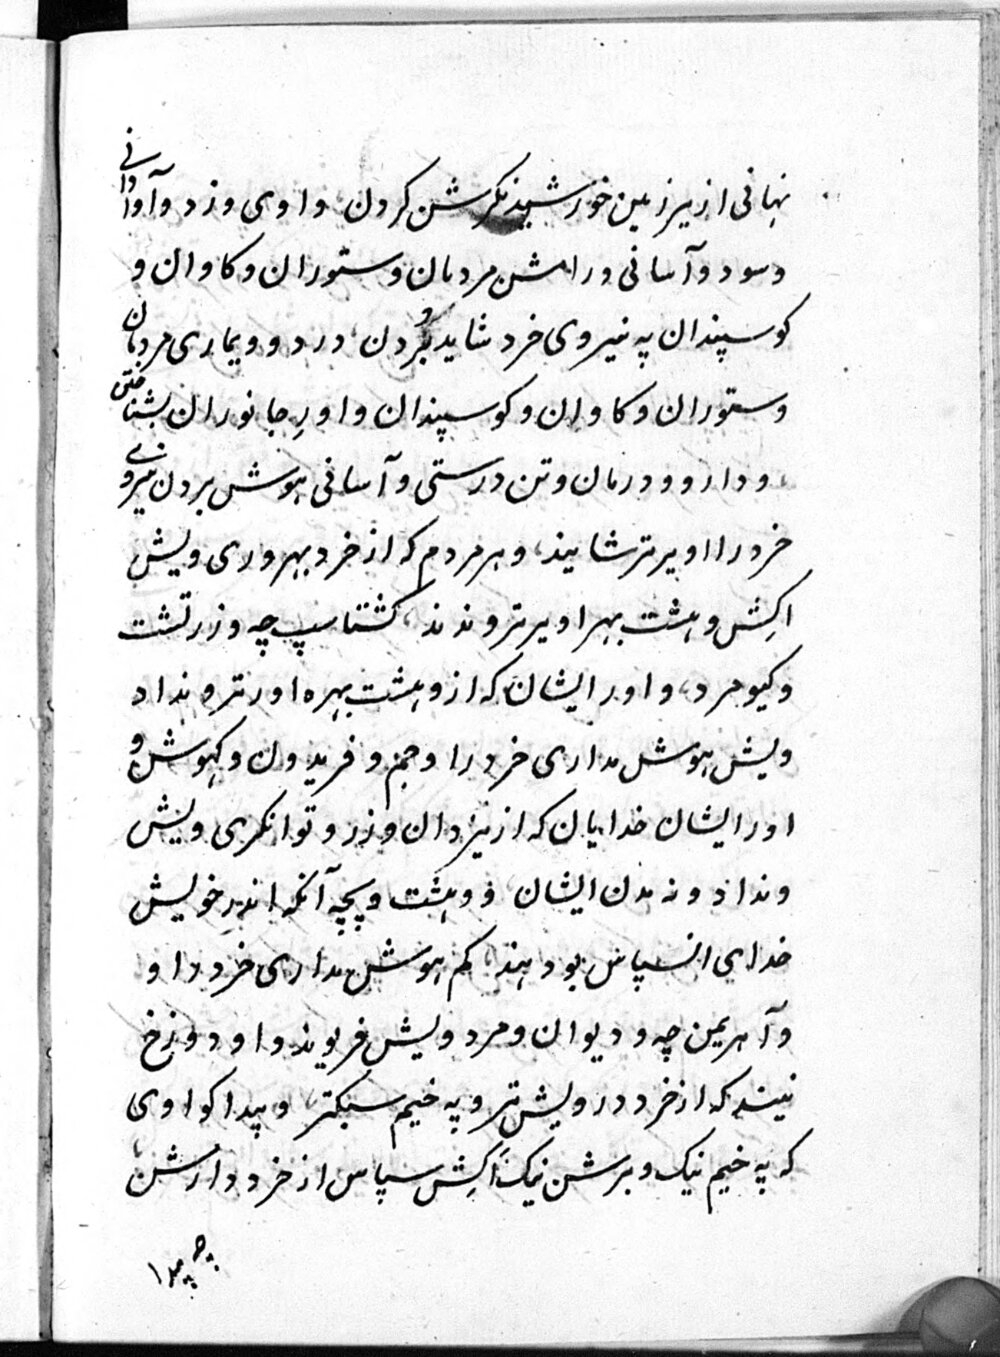 نهانی از زیر زمین خورشید نکرشن کردن، و اوی وزد و آوادانی
وسود و آسانی و رامشن مردمان وستوران و کاوان و
کوسپندان په نیروی خرد شاید کردن، درد و ویماری مردمان
وستوران و کاوان و کوسپندان و اورِ جانوران بشناختن
و دارو و درمان و تن درستی و آسانی هوش بردن نیروی
خرد را اویرتر شایند، و هر مردم که از خرد بهروری ویش
اکِش وهشت بهر اویرتر وندند، کشتاسپ چه و زرتشت
و کیومرد، و اور ایشان که از وهشت بهره اورتر ونداد
ویش هوش مداری خرد را و جم و فریدون و کهوش و
اور ایشان خدایان که از یزدان وزر و توانکری ویش
ونداد و نه مدن ایشان و وهشت و پچه آنکه اندر خویش
خدای انسپاس بود هند، کم هوش مداری خرد را و
و آهریمن چه و دیوان و مرد ویش فریوند و او دوزخ
نیند که از خرد درویش تر و په خیم سبکتر، و پیدا کو اوی
که په خیم نیک و برشن نیک اکِش سپاس از خرد دارشن
چه پیدا